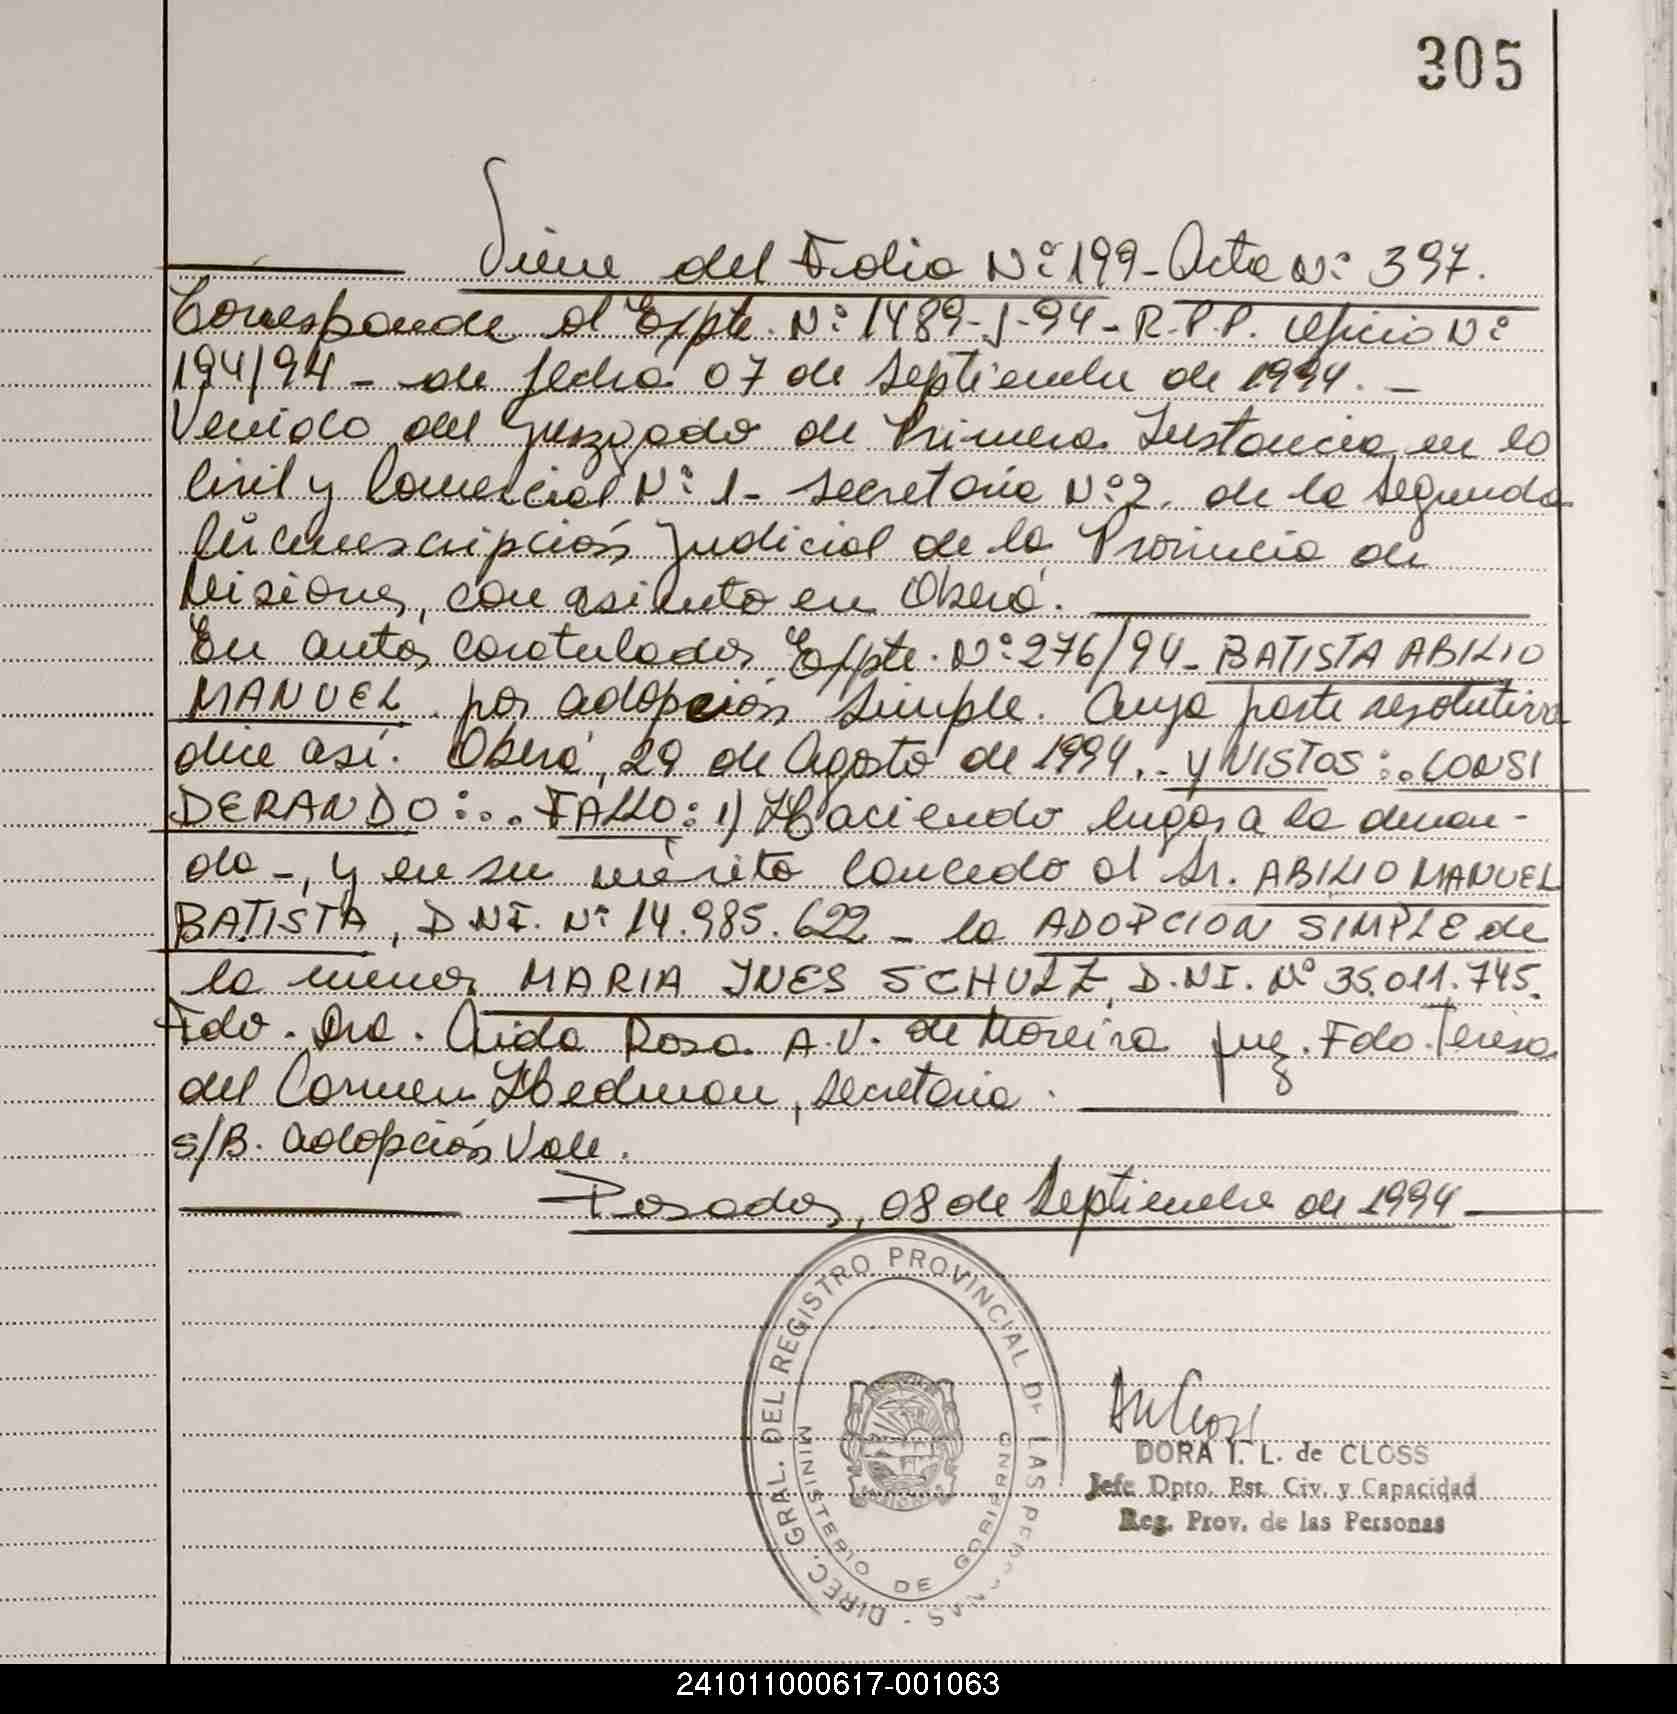 305
Viene del Folio Nº 199 - Acta Nº 397.
Corresponde al Expte. Nº 1489-J-94 - R.P.P. Oficio Nº
194/94 - de fecha 07 de Septiembre de 1994. -
Venido del Juzgado de Primera Instancia en lo
Civil y Comercial Nº 1 - Secretaria Nº 2. de la Segunda
Circunscripción Judicial de la Provincia de
Misiones, con asiento en Oberá.
En autos caratulados Expte. Nº 276/94 - BATISTA ABILIO
MANUEL por adopción Simple. Cuya parte resolutiva
dice así. Oberá, 29 de Agosto de 1994.- y VISTOS:. CONSI
DERANDO:... FALLO: 1) Haciendo lugar a la deman-
da -, y en su mérito Concedo al Sr. ABILIO MANUEL
BATISTA, D.N.I. Nº 14.985.622 - la ADOPCION SIMPLE de
la menor MARIA INES SCHULZ, D.N.I. Nº 35.011.745.
Fdo. Dra. Aida Rosa A.V. de Moreira Juez. Fdo. Teresa
del Carmen Hedman, secretaria.
s/B. adopción Vale.
Posadas, 08 de Septiembre de 1994
DIREC. GRAL. DEL REGISTRO PROVINCIAL DE LAS PERSONAS -
MINISTERIO DE GOBIERNO
DORA I. L. de CLOSS
Jefe Dpto. Est. Civ. y Capacidad
Reg. Prov. de las Personas
241011000617-001063